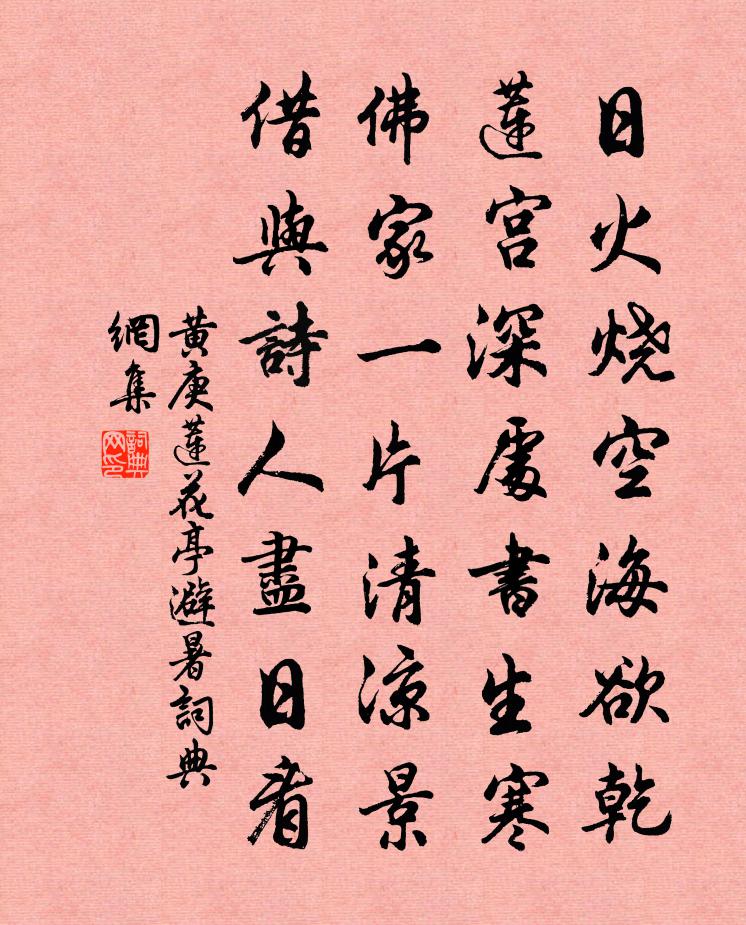 日火烧空海欲乾
蓮宮深處書生寒
佛家一片清凉景
借與詩人盡日看
黄庚蓮花亭避暑詞典
網集
詞典網印